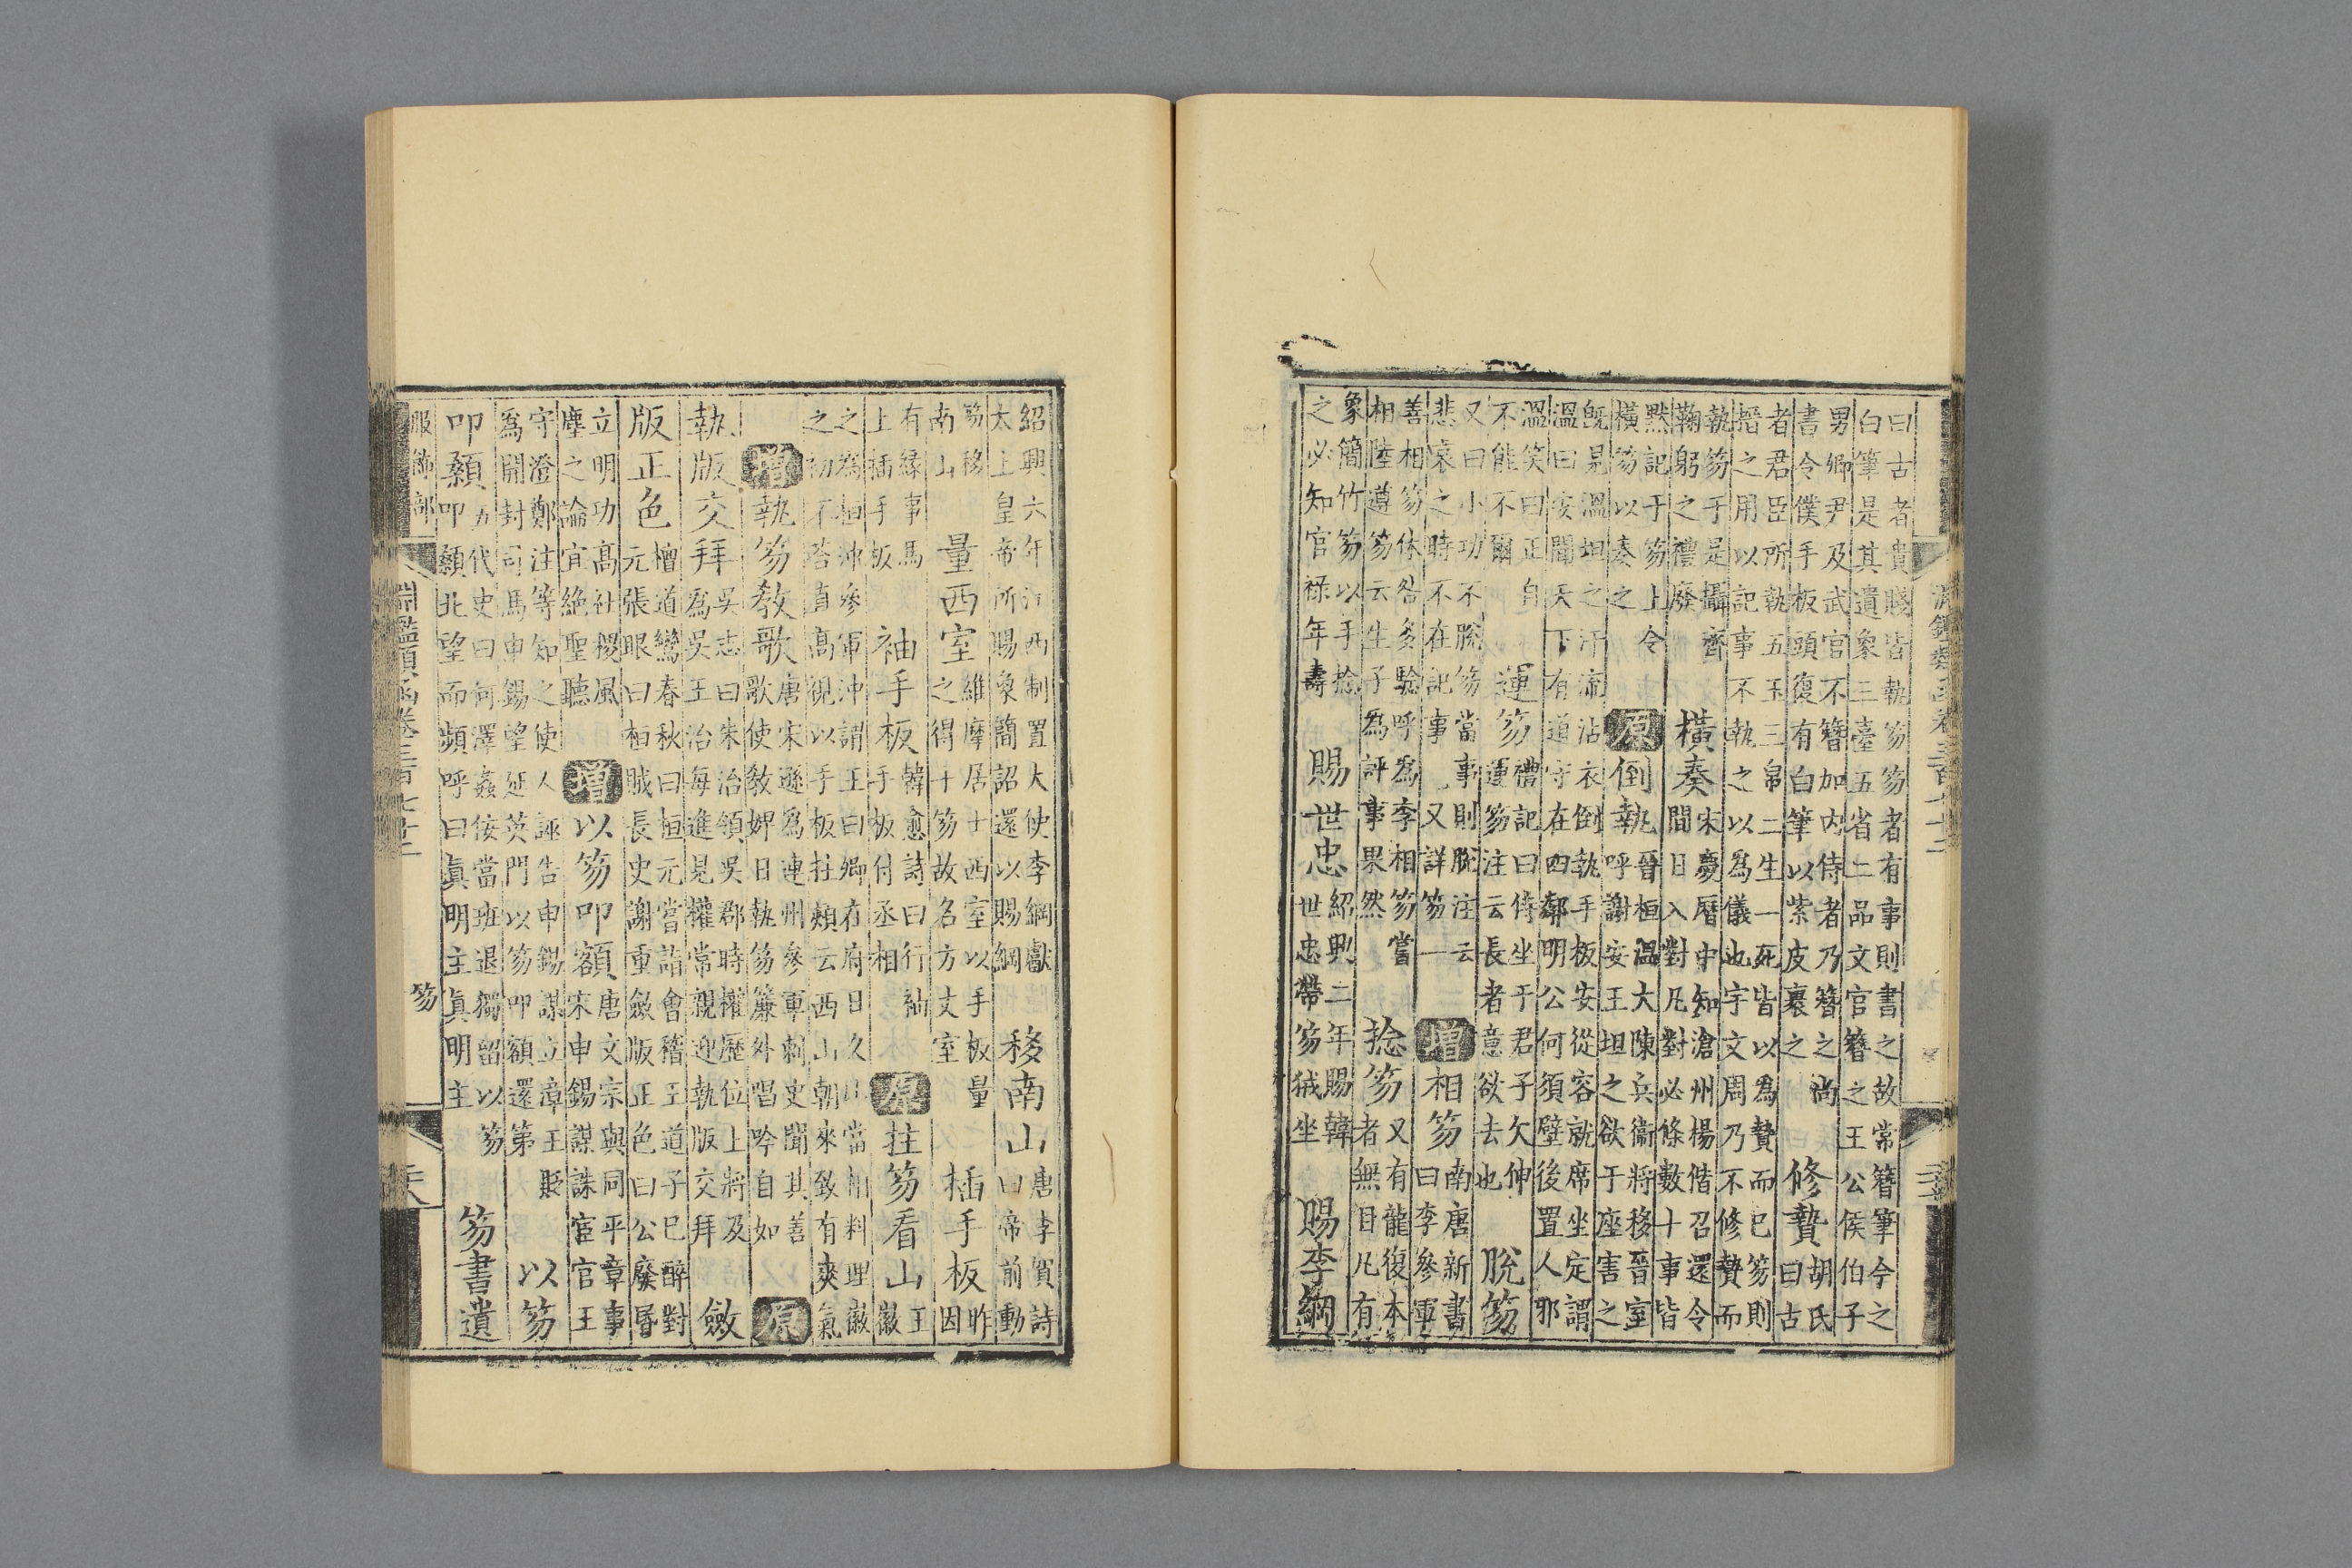 曰古者貴賤皆執笏笏者有事則書之故常簪筆今之
白筆是其遺象三臺五省二品文官簪之王公侯伯子
男卿尹及武官不簪加内侍者乃簪之尚
書令僕手板頭復有白筆以紫皮裹之
修贄
胡氏
曰古
者君臣所執五玉三帛二生一死皆以為贄而已笏則
搢之用以記事不執之以為儀也宇文周乃不修贄而
執笏于是攝齊
鞠躬之禮廢
橫奏
宋慶曆中知滄州楊偕召還令
間日入對凡對必條數十事皆
默記于笏上令
橫笏以奏之
原 倒執
晉桓溫大陳兵衛將移晉室
呼謝安王坦之欲于座害之
旣見溫坦之汗流沾衣倒執手板安從容就席坐定謂
溫曰安聞天下有道守在四鄰明公何須壁後置人邪
溫笑曰正自
不能不爾
運笏
禮記曰侍坐于君子欠伸
運笏注云長者意欲去也
脫笏
又曰小功不脫笏當事則脫注云
悲哀之時不在記事 又詳笏一
增 相笏
南唐新書
曰李參軍
善相笏休咎多驗呼為李相笏嘗
相陸遵笏云生子為評事果然
捻笏
又有龍復本
者無目凡有
象簡竹笏以手捻
之必知官祿年壽
賜世忠
紹興二年賜韓
世忠帶笏狨坐
賜李綱
紹興六年江西制置大使李綱獻
太上皇帝所賜象簡詔還以賜綱
移南山
唐李賀詩
曰帝前動
笏移
南山
量西室
維摩居士西室以手板量
之得十笏故名方丈室
插手板
昨
因
有緣事馬
上插手板
袖手板
韓愈詩曰行袖
手板付丞相
原 拄笏看山
王
徽
之為桓沖參軍沖謂王曰卿在府日久比當相料理徽
之初不答直高視以手板拄頰云西山朝來致有爽氣
增 執笏教歌
唐宋遜為連州參軍刺史聞其善
歌使教婢日執笏簾外唱吟自如
原
執版交拜
吳志曰朱治領吳郡時權歷位上將及
為吳王治每進見權常親迎執版交拜
斂
版正色
檀道鸞春秋曰桓元嘗詣會稽王道子已醉對
元張眼曰桓賊長史謝重斂版正色曰公廢昬
立明功高社稷風
塵之論宜絕聖聽
增 以笏叩額
唐文宗與同平章事
宋申錫謀誅宦官王
守澄鄭注等知之使人誣告申錫謀立漳王貶
為開封司馬申錫望延英門以笏叩額還第
以笏
叩顙
五代史曰何澤姦佞當班退獨留以笏
叩顙北望而頻呼曰眞明主眞明主
笏書遺
服飾部
淵鑑類函卷三百七十二 笏